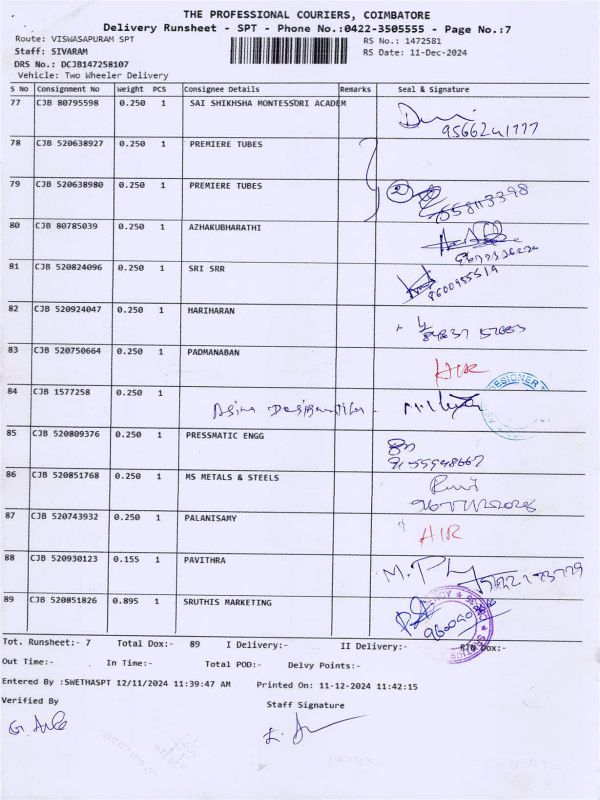 THE PROFESSIONAL COURIERS, COIMBATORE
Delivery Runsheet - SPT - Phone No.:0422-3505555 - Page No.:7
Route: VISWASAPURAM SPT RS No.: 1472581
Staff: SIVARAM RS Date: 11-Dec-2024
DRS No.: DCJB147258107
Vehicle: Two Wheeler Delivery
S No Consignment No Weight PCS Consignee Details Remarks Seal & Signature
77 CJB 80795598 0.250 1 SAI SHIKHSHA MONTESSORI ACADEM
78 CJB 520638927 0.250 1 PREMIERE TUBES
79 CJB 520638980 0.250 1 PREMIERE TUBES
80 CJB 80785039 0.250 1 AZHAKUBHARATHI
81 CJB 520824096 0.250 1 SRI SRR
9600955519
82 CJB 520924047 0.250 1 HARIHARAN
83 CJB 520750664 0.250 1 PADMANABAN
AIR
84 CJB 1577258 0.250 1
DESIGNER
85 CJB 520809376 0.250 1 PRESSMATIC ENGG
86 CJB 520851768 0.250 1 MS METALS & STEELS
87 CJB 520743932 0.250 1 PALANISAMY
AIR
88 CJB 520930123 0.155 1 PAVITHRA
89 CJB 520851826 0.895 1 SRUTHIS MARKETING
Tot. Runsheet:- 7 Total Dox:- 89 I Delivery:- II Delivery:- RTN Dox:-
Out Time:- In Time:- Total POD:- Delvy Points:-
Entered By :SWETHASPT 12/11/2024 11:39:47 AM Printed On: 11-12-2024 11:42:15
Verified By Staff Signature